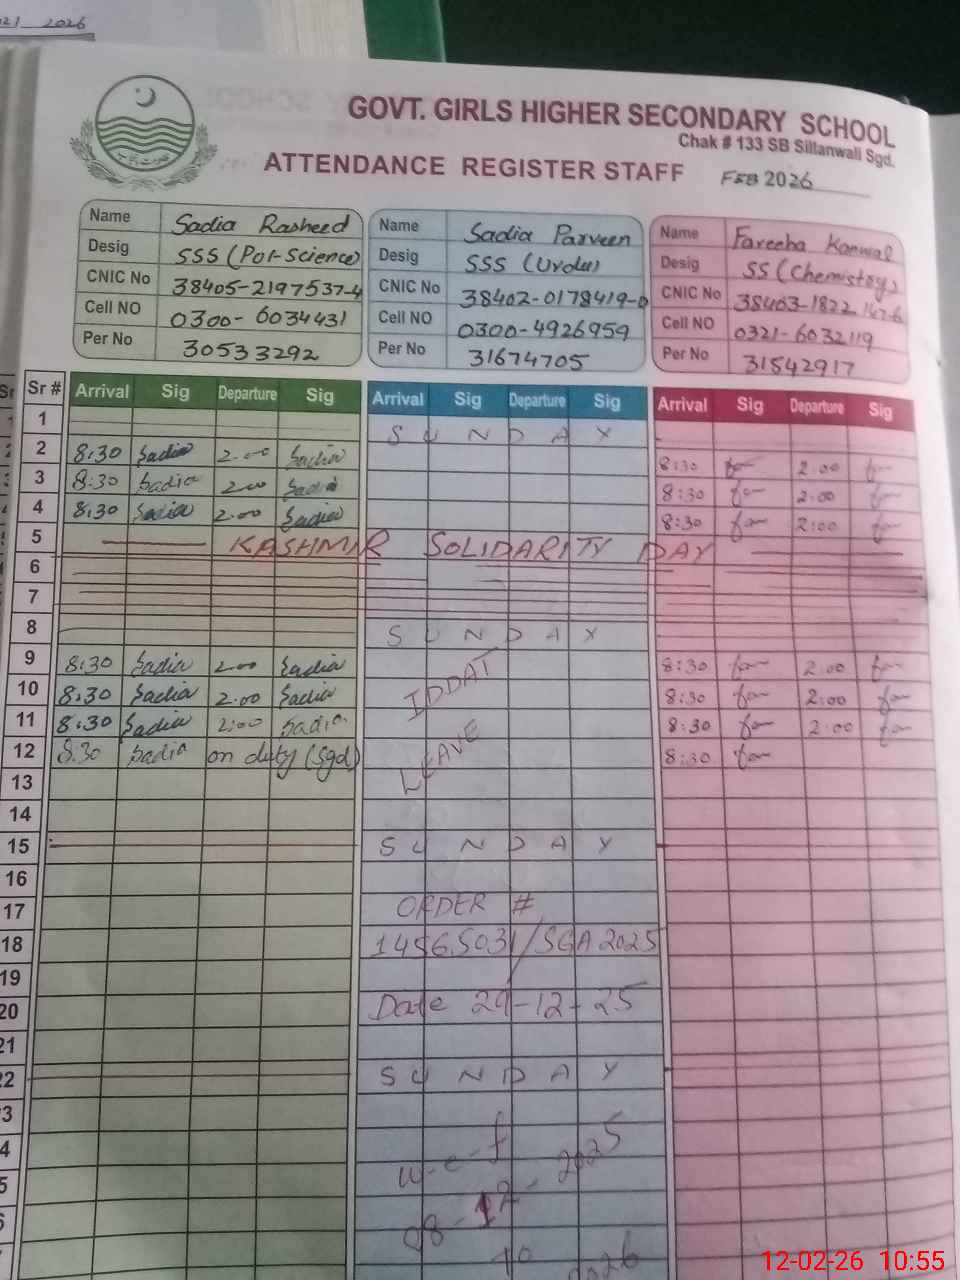 2026
GOVT. GIRLS HIGHER SECONDARY SCHOOL
Chak # 133 SB Sillanwali Sgd.
ATTENDANCE REGISTER STAFF FEB 2026
Name Sadia Rasheed Name Sadia Parveen Name Fareeha Kanwal
Desig SSS (Pol-Science) Desig SSS (Urdu) Desig SS (Chemistry)
CNIC No 38405-2197537-4 CNIC No 38402-0178419- CNIC No 38403-1822
Cell NO 0300-6034431 Cell NO 0300-4926959 Cell NO 0321-6032119
Per No 30533292 Per No 31674705 Per No 31542917
Sr # Arrival Sig Departure Sig Arrival Sig Departure Sig Arrival Sig Departure Sig
1 SUNDAY
2 8:30 Sadia 2.00 Sadia 8:30 2.00
3 8:30 Sadia 2.00 Sadia 8:30 2.00
4 8:30 Sadia 2.00 Sadia 8:30 2:00
5 KASHMIR SOLIDARITY DAY
6
7
8 SUNDAY
9 8:30 Sadia 2.00 Sadia 8:30 2:00
10 8:30 Sadia 2.00 Sadia IDDAT 8:30 2:00
11 8:30 Sadia 2:00 Sadia 8:30 2:00
12 8:30 Sadia on duty (Sgd) LEAVE 8:30
13
14
15 SUNDAY
16
17 ORDER #
18 14565031/SGA 2025
19
20 Date 29-12-25
21
22 SUNDAY
3
4 w-e-f
5 08-12-2025
6 To
12-02-26 10:55